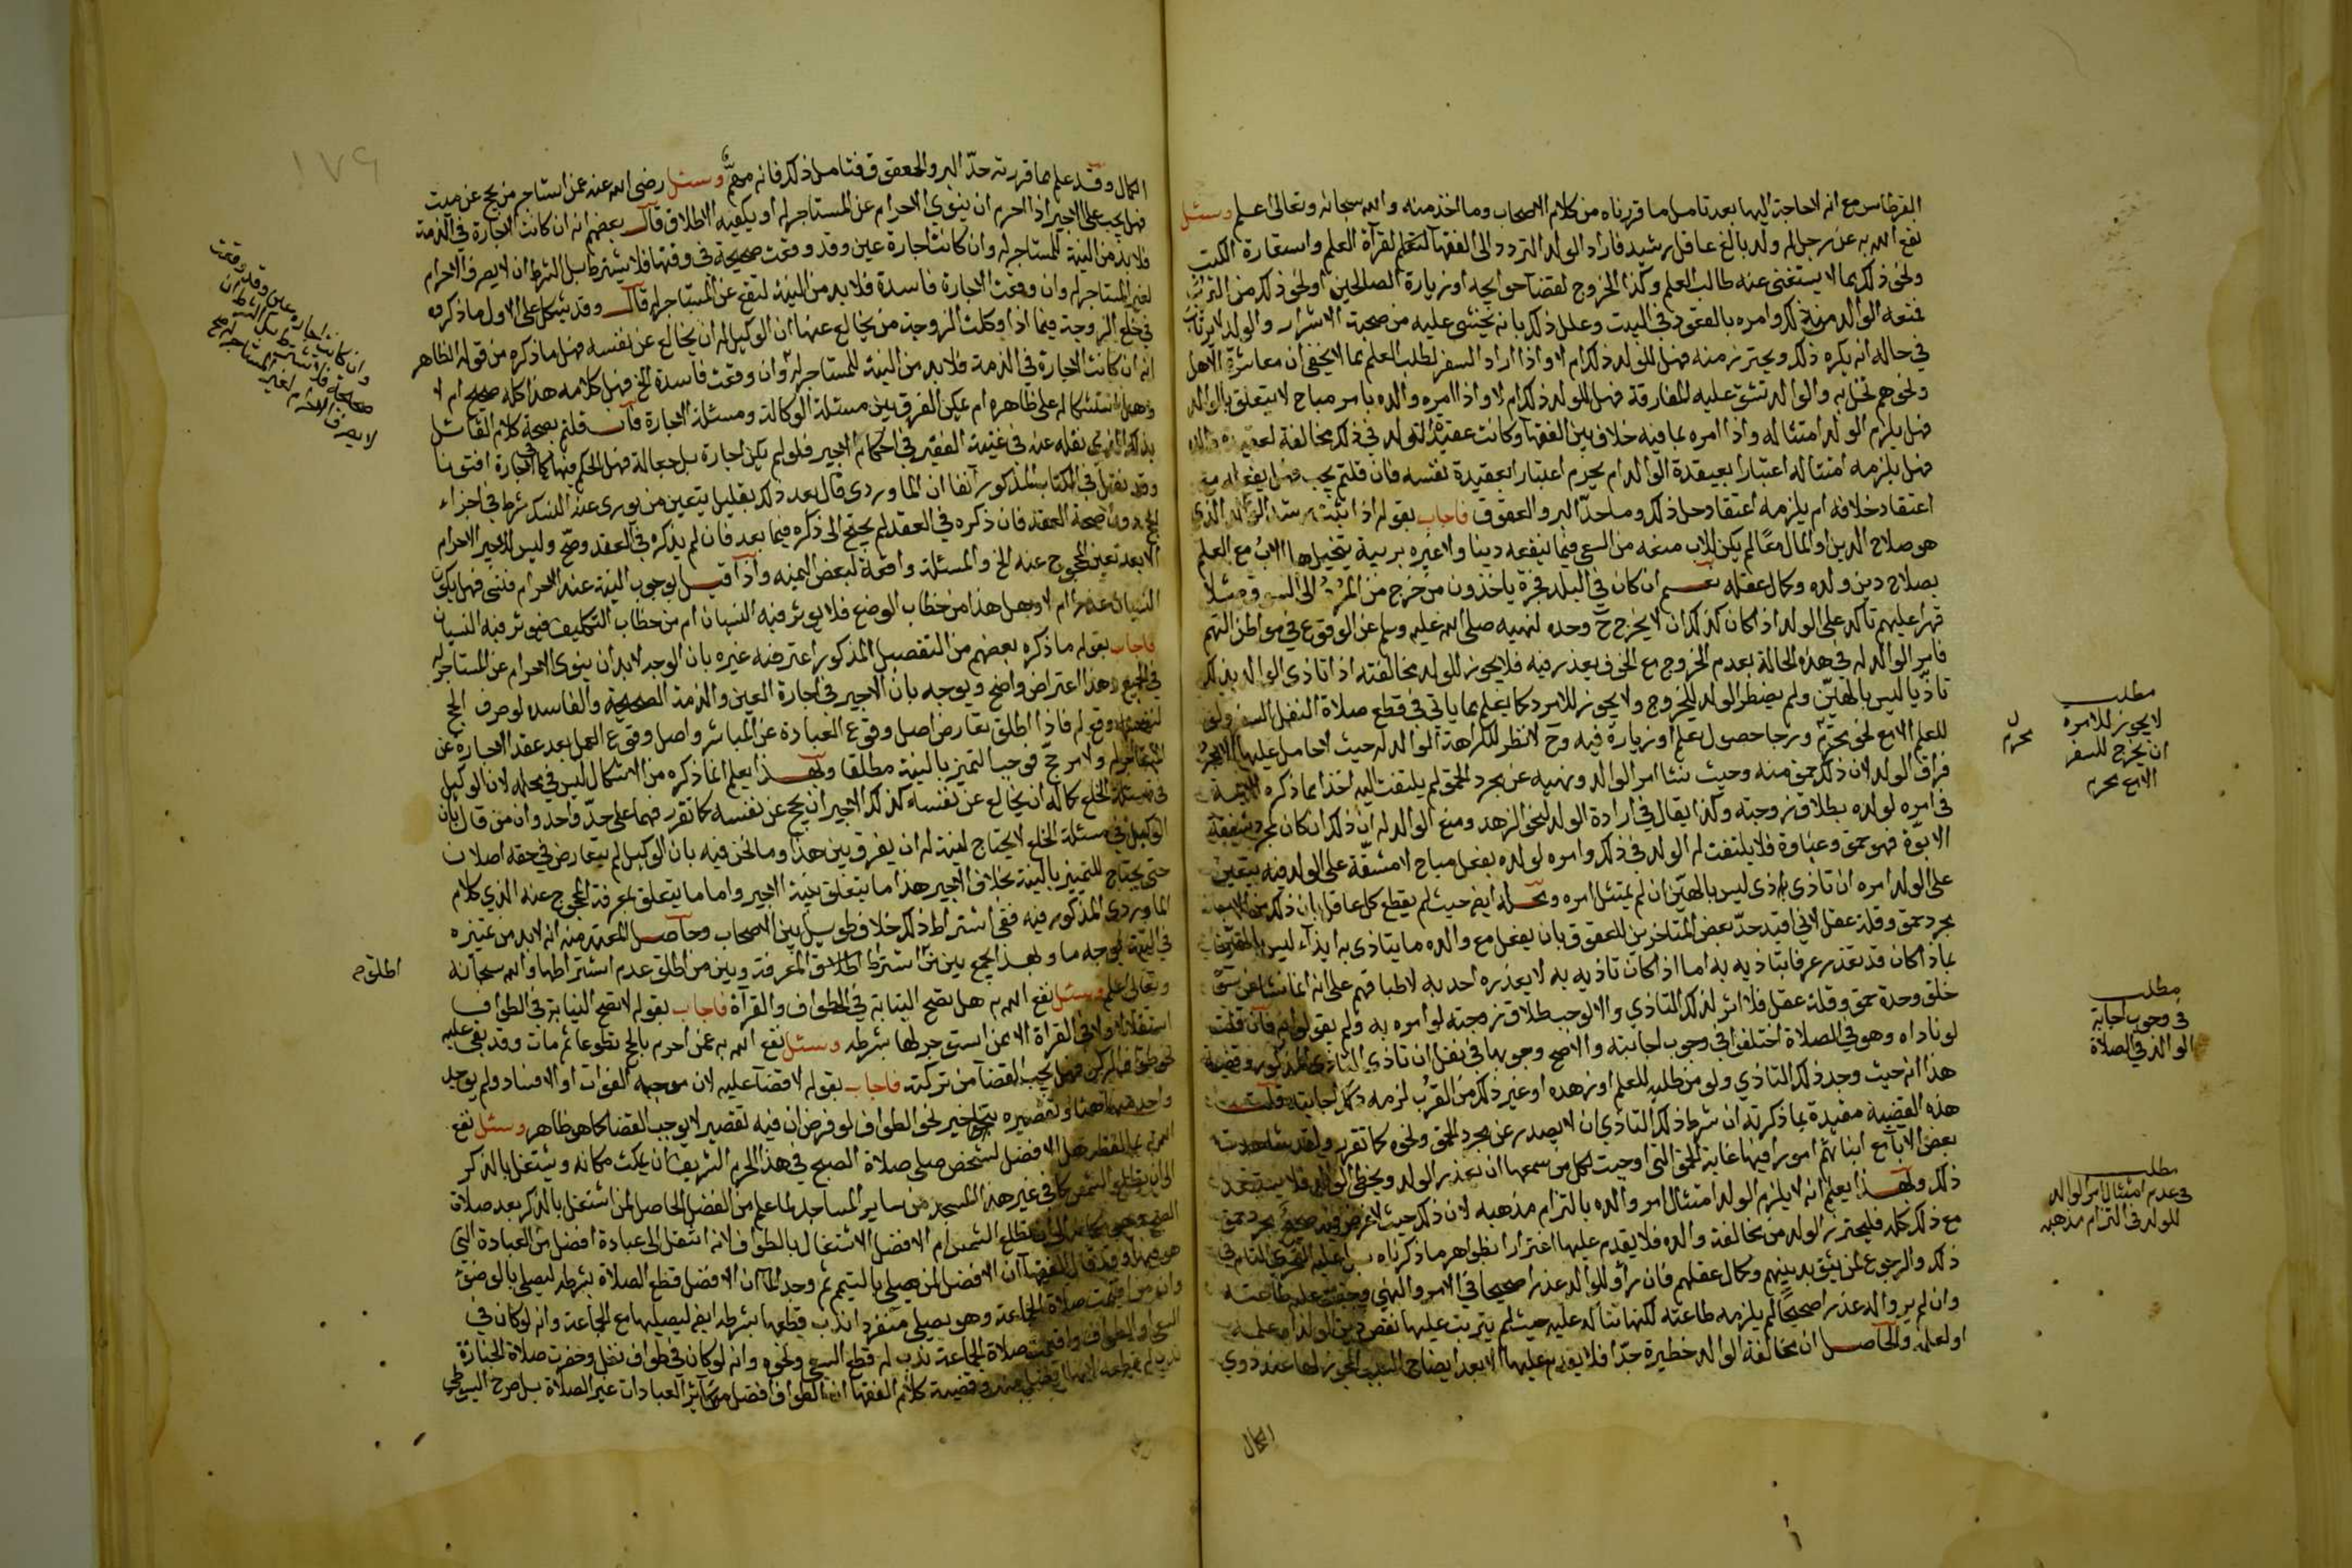 القرطاس مع انه لا حاجة اليها بعد تامل ما قررناه من كلام الاصحاب وما اخذ منه والله سبحانه وتعالى اعلم وسئل
نفع الله به عن رجل له ولد بالغ عاقل رشيد فاراد الولد التردد الى الفقهآ للتعلم لقرآة العلم واستعارة الكتب
ونحو ذلك مما لا يستغنى عنه طالب العلم وكذا الخروج لقضآ حوايجه او زيارة الصالحين او نحو ذلك من القرب
فمنعه الوالد من ذلك وامره بالقعود في البيت وعلل ذلك بانه يخشى عليه من صحبة الاشرار والولد لا يرتاب
في حاله انه يكره ذلك ويحترز منه فهل للولد ذلك ام لا واذا اراد السفر لطلب العلم بما لا يخفى ان معاشرة الاهل
ونحوهم تخل به والوالد تشق عليه المفارقة فهل للولد ذلك ام لا واذا امره والده بامر مباح لا يتعلق بالوالد
فهل يلزم الولد امتثاله واذا امره بما فيه خلاف بين الفقهآ وكانت عقيدة الولد في ذلك مخالفة لعقيدة والده
فهل يلزمه امتثاله اعتبارا بعقيدة الوالد ام يحرم اعتبارا بعقيدة نفسه فان قلتم يجب فهل يفعله مع
اعتقاد خلافه ام يلزمه اعتقاد حل ذلك وما حدّ البر والعقوق فاجاب بقوله اذا ثبت رشد الولد الذي
هو صلاح الدين والمال معًا لم يكن للاب منعه من السعي فيما ينفعه دينا ولا غيره بريبة يتخيلها الاب مع العلم
بصلاح دين ولده وكمال عقله نعم ان كان في البلد فجرة ياخذون من خرج من المُرْدِ الى السوق مثلا
قهرا عليهم تاكد على الولد اذا كان كذلك ان لا يخرج ح وحده لنهيه صلى الله عليه وسلم عن الوقوع في مواطن التهم
فامر الوالد له في هذه الحالة بعدم الخروج مع الخوف يعذر فيه فلا يجوز للولد مخالفته اذا تاذى الوالد بذلك
تاذّيا ليس بالهيّن ولم يضطر الولد للخروج ولا يجوز للامرد كما يعلم مما ياتي في قطع صلاة النفل السفر ولو
للعلم الا مع نحو محرم ورجا حصول علم او زيارة فيه وح لا نظر لكراهة الوالد له حيث لا حامل عليها الا مجرد
فراق الولد لان ذلك حمق منه وحيث نشا امر الوالد ونهيه عن مجرد الحمق لم يلتفت اليه اخذا مما ذكره الايمة
في امره لولده بطلاق زوجته وكذا يقال في ارادة الولد لنحو الزهد ومنع الوالد له ان ذلك ان كان لمجرد شفقة
الابوّة فهو حمق وغباوة فلا يلتفت له الولد في ذلك وامره لولده بفعل مباح لا مشقّة على الولد فيه يتعين
على الولد امره ان تاذى اذى ليس بالهيّن ان لم يمتثل امره ومحله ايضا حيث لم يقطع كل عاقل بان ذلك من الاب
مجرد حمق وقلة عقل لاني اقيد حدّ بعض المتاخرين للعقوق بان يفعل مع والده ما يتاذى به ايذآء ليس بالهيّن
بما ذا كان قد يعذر عرفا بتاذيه به اما اذا كان تاذيه به لا يعذره احد به لاطباقهم على انه انما نشا عن سوء
خلق وحدة حمق وقلة عقل فلا اثر لذلك التاذي والا لوجب طلاق زوجته لو امره به ولم يقولوا به فان قلت
لو ناداه وهو في الصلاة اختلفوا في وجوب اجابته والاصح وجوبها في نفل ان تاذى التاذي المذكور وقضية
هذا انه حيث وجد ذلك التاذي ولو من طلبه للعلم او زهده او غير ذلك من القُرب لزمه ذلك لاجابته قلت
هذه القضية مقيدة بما ذكرته ان شرط ذلك التاذي ان لا يصدر عن مجرد الحمق ونحوه كما تقرر ولقد شاهدت
بعض الابآ مع ابنائهم امورا فيها غاية الحمق التي اوجبت لكل من سمعها ان يعذر الولد ويخطئ الوالد فلا يستبعد
ذلك وبهذا يعلم انه لا يلزم الولد امتثال امر والده بالتزام مذهبه لان ذلك حيث لا غرض فيه صحيح مجرد حمق
مع ذلك كله فليحترز الولد من مخالفة والده فلا يقدم عليها اغترارا بظواهر ما ذكرناه بل عليه التحري التام في
ذلك والرجوع لمن يثق بدينهم وكمال عقلهم فان راو للوالد عذرا صحيحا في الامر والنهي وجبت عليه طاعته
وان لم يروا له عذرا صحيحًا لم يلزمه طاعته لكنها تتاكد عليه حيث لم يترتب عليها نقص دين الولد او علمه
او لعله والحاصل ان مخالفة الوالد خطيرة جدّا فلا يقدم عليها الا بعد ايضاح السبب المجوز لها عند ذوي
الكمال
محرم
مطلب
لا يجوز للامرد
ان يخرج للسفر
الا مع محرم
مطلب
في وجوب اجابة
الوالد في الصلاة
مطلب
في عدم امتثال امر الوالد
للولد في التزام مذهبه
١٧٩
الكمال وقد علم ما قررته حدّ البر والعقوق فتامل ذلك فانه مهمّ وسئل رضى الله عنه عمن استاجر من يحج عن ميت
فهل يجب على الاجير اذا احرم ان ينوي الاحرام عن المستاجر له او يكفيه الاطلاق قال بعضهم انه ان كانت الاجارة في الذمة
فلا بد من النية للمستاجر له وان كانت اجارة عين وقد وقعت صحيحة في وقتها فلا يشترط بل الشرط ان لا يصرف الاحرام
لغير المستاجر له وان وقعت الاجارة فاسدة فلا بد من النية لتقع عن المستاجر له قال وقد يشكل على الاول ما ذكروه
في خلع الزوجة فيما اذا وكلت الزوجة من يخالع عنها ان الوكيل له ان يخالع عن نفسه فهل ما ذكره من قوله الظاهر
انه ان كانت الاجارة في الذمة فلا بد من النية للمستاجر له وان وقعت فاسدة الخ فهل كلامه هذا كله صحيح ام لا
وهل استشكاله على ظاهره ام يمكن الفرق بين مسئلة الوكالة ومسئلة الاجارة فان قلتم بصحة كلام القائل
بذلك الذي نقله عنه في غنية الفقير في احكام الاجير فلو لم يكن اجارة بل جعالة فهل الحكم فيها كالاجارة افتونا
وقد نقل في الكتاب المذكور آنفا ان الماوردي قال بعد ذلك بقليل يتعين من نوى عنه النسك شرط في اجزاء
الحج دون صحة العقد فان ذكره في العقد لم يحتج الى ذكره فيما بعد فان لم يذكره في العقد وصحّ وليس للاجير الاحرام
الا بعد تعين المحجوج عنه الخ والمسئلة واقعة لبعض اليمنه واذا قيل بوجوب النية عند الاحرام فنسي فهل يكون
النسيان عذرا ام لا وهل هذا من خطاب الوضع فلا يوثر فيه النسيان ام من خطاب التكليف فيوثر فيه النسيان
فاجاب بقوله ما ذكره بعضهم من التفصيل المذكور اعترضه غيره بان الوجه لا بد ان ينوى الاحرام عن المستاجر له
في الجميع وهذا اعتراض واضح ويوجه بان الاجير في اجارة العين والذمة الصحيحة والفاسده لو صرف الحج
لنفسه وقع له فاذا اطلق تعارض اصل وقوع العبادة عن المباشر واصل وقوع العمل بعد عقد الاجارة عن
المستاجر له ولا مرجح فوجب التميز بالنية مطلقا وبهذا يعلم انما ذكره من الاشكال ليس في محله لان الوكيل
في مسئلة الخلع كما له ان يخالع عن نفسه كذلك الاجير ان يحج عن نفسه كما تقرر فهما على حدّ واحد وان من قال بان
الوكيل في مسئلة الخلع لا يحتاج لنية له ان يفرق بين هذا وما نحن فيه بان الوكيل لم يتعارض في حقه اصلان
حتى يحتاج للتمييز بالنية بخلاف الاجير هذا ما يتعلق بنية الاجير واما ما يتعلق بمعرفة المحجوج عنه الذي كلام
الماوردي المذكور فيه ففي اشتراط ذلك خلاف طويل بين الاصحاب وحاصل المعتمد منه انه لا بد من تميزه
في النية بوجه ما وبهذا يجمع بين من اشترط اطلاق المعرفة وبين من اطلق عدم اشتراطها والله سبحانه
وتعالى اعلم وسئل نفع الله به هل تصح النيابة في الطواف والقرآة فاجاب بقوله لا تصح النيابة في الطواف
استقلالا ولا في القراة الا بمن استوجر لها بشرطه وسئل نفع الله به عمن احرم بالحج تطوعا ثم مات وقد بقي عليه
نحو طواف الركن فهل يجب القضآ من تركته فاجاب بقوله لا قضآ عليه لان موجبه الفوات او الافساد ولم يوجد
واحد منهما هنا وتقصيره بتاخير نحو الطواف لو فرض ان فيه تقصير لا يوجب القضا كما هو ظاهر وسئل نفع
الله به هل الافضل لشخص صلى صلاة الصبح في هذا الحرم الشريف ان يمكث مكانه ويشتغل بالذكر
الى ان تطلع الشمس كما في غير هذا المسجد من ساير المساجد لما علم من الفضل الحاصل لمن اشتغل بالذكر بعد صلاة
الصبح الى ان تطلع الشمس ام الافضل الاشتغال بالطواف لانه انتقل الى عبادة افضل من العبادة التي
هو فيها وقد قال الفقهآ ان الافضل لمن يصلي بالتيمم ثم وجد المآ ان الافضل قطع الصلاة بشرطه ليصلي بالوضوء
وان من اقيمت صلاة الجماعة وهو يصلي منفردا ندب قطعها بشرطه ايضا ليصليها مع الجماعة وانه لو كان في
السعي والطواف واقيمت صلاة الجماعة ندب له قطع السعي ونحوه وانه لو كان في طواف نفل وحضرت صلاة الجنازة
ندب له قطعه وقضية كلام الفقها ان الطواف افضل من سآئر العبادات غير الصلاة بل صرح السيوطي
وان كانت اجارة عين وقد وقعت
صحيحة فلا يشترط بل الشرط ان
لا يصرف الاحرام لغير المستاجر له صح
اطلاق صح